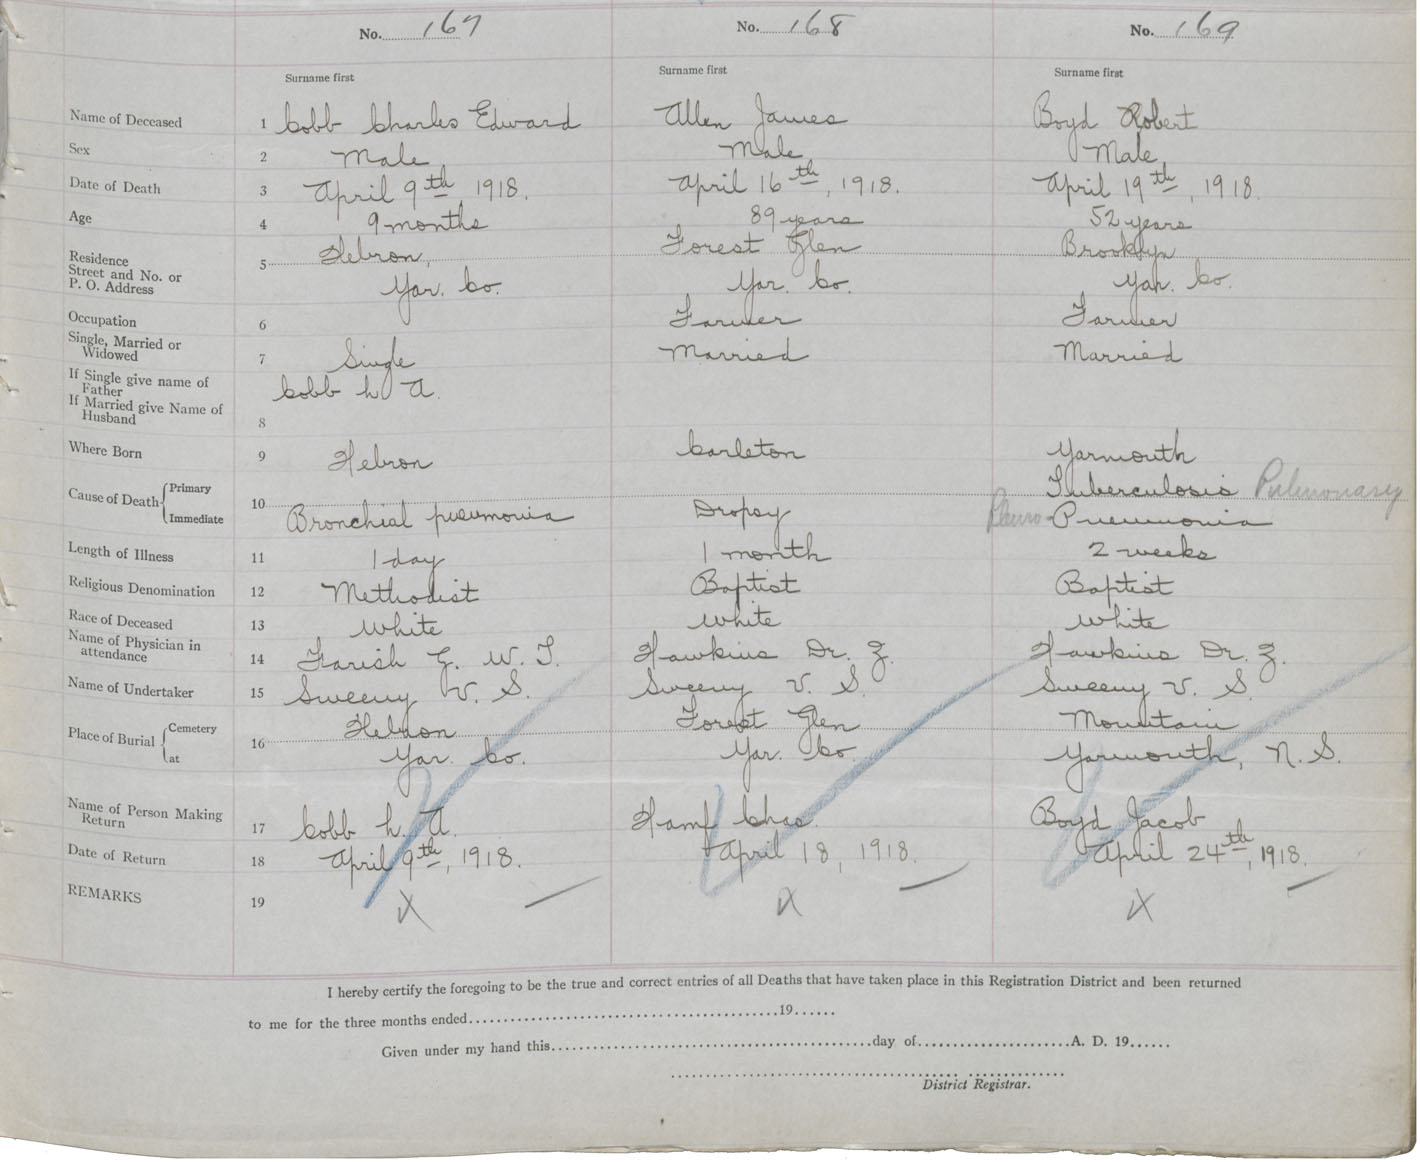 No. 167 No. 168 No. 169
Surname first Surname first Surname first
Name of Deceased 1 Cobb Charles Edward Allen James Boyd Robert
Sex 2 Male, Male, Male,
Date of Death 3 April 9th, 1918. April 16th, 1918. April 19th, 1918.
Age 4 9 months 89 years 52 years
Residence
Street and No. or
P. O. Address
5 Hebron, Forest Glen Brooklyn
Yar. Co. Yar. Co. Yar. Co.
Occupation 6 Farmer Farmer
Single, Married or
Widowed
7 Single Married Married
If Single give name of
Father
Cobb h A.
If Married give Name of
Husband
8
Where Born 9 Hebron Carleton Yarmouth
Cause of Death Primary Tuberculosis Pulmonary
10
Immediate Bronchial pneumonia Dropsy Pleuro-Pneumonia
Length of Illness 11 1 day 1 month 2 weeks
Religious Denomination 12 Methodist Baptist Baptist
Race of Deceased 13 White White White
Name of Physician in
attendance
14 Farish G. W. T. Hawkins Dr. Z. Hawkins Dr. Z.
Name of Undertaker 15 Sweeny V. S. Sweeny V. S. Sweeny V. S.
Place of Burial Cemetery Hebron Forest Glen Mountain
16
at Yar. Co. Yar. Co. Yarmouth, N. S.
Name of Person Making
Return
17 Cobb h. A. Chas. Boyd Jacob
Date of Return 18 April 9th, 1918. April 18, 1918. April 24th, 1918.
REMARKS 19 X X X
I hereby certify the foregoing to be the true and correct entries of all Deaths that have taken place in this Registration District and been returned
to me for the three months ended 19
Given under my hand this day of A. D. 19
District Registrar.